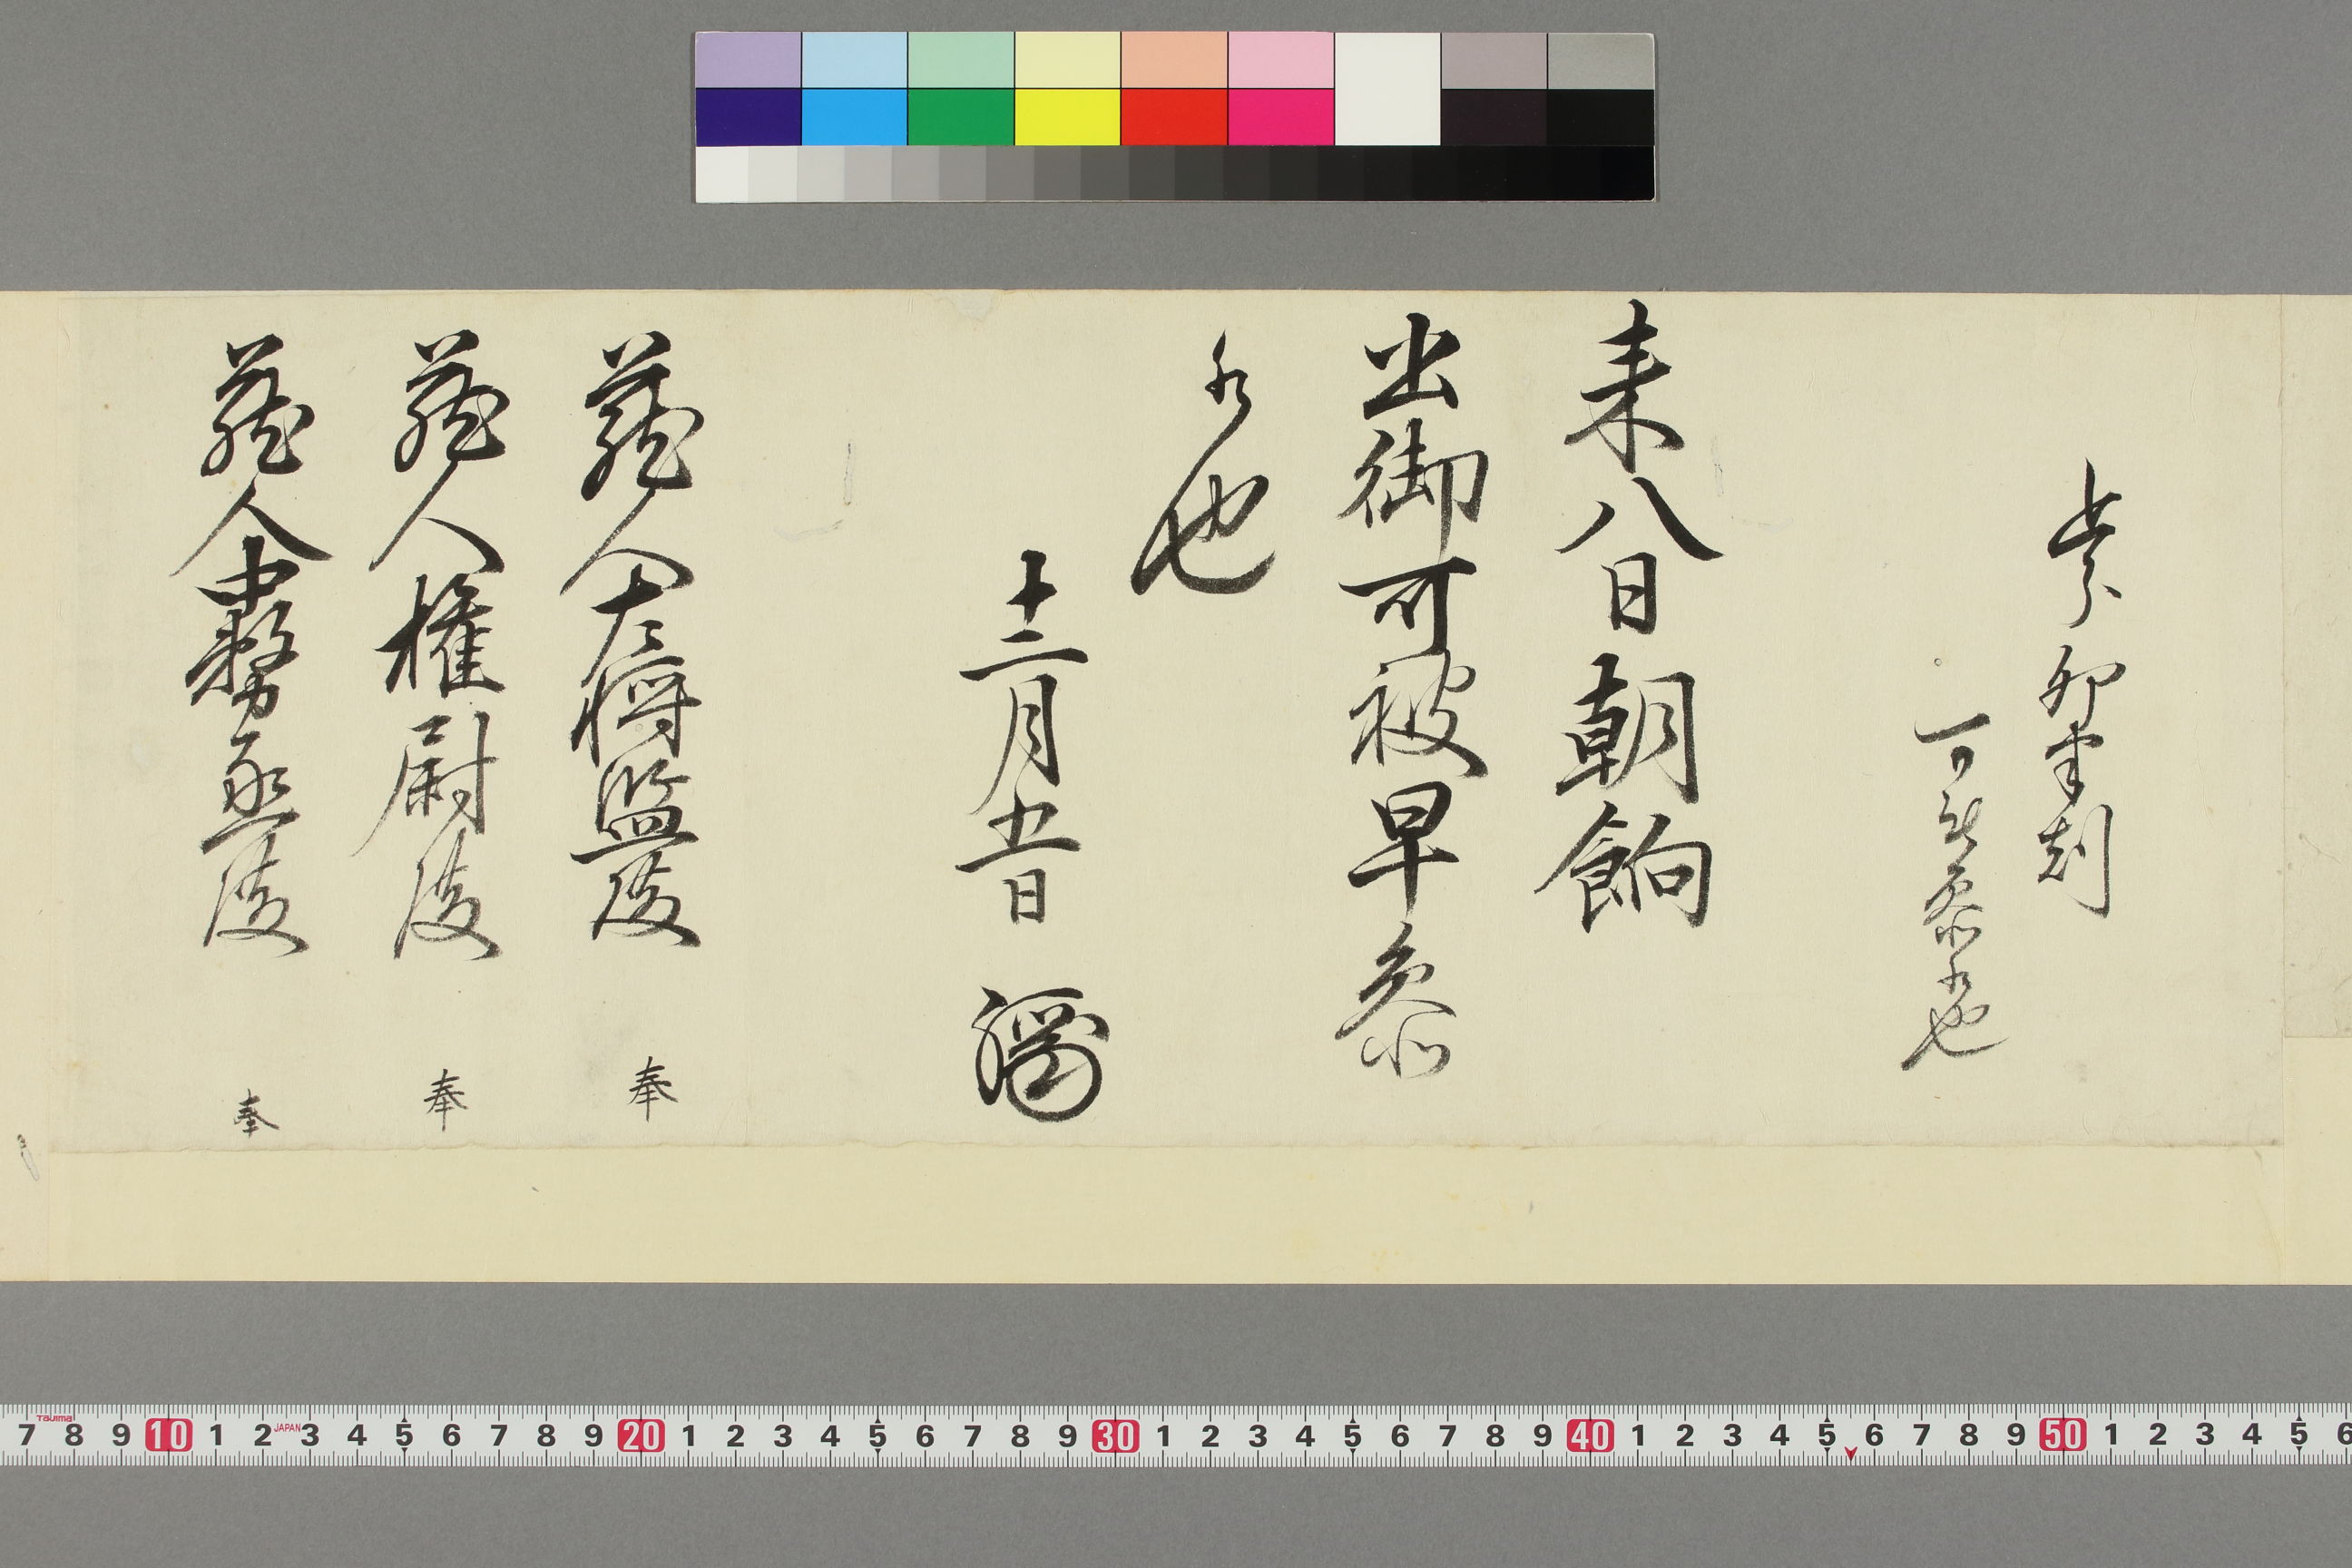 卯半刻
可被参候也
来八日朝餉
出御可被早参
候也
十二月五日
蔵人左将監殿 奉
蔵人権尉殿 奉
蔵人中務丞殿 奉
7 8 9 10 1 2 3 4 5 6 7 8 9 20 1 2 3 4 5 6 7 8 9 30 1 2 3 4 5 6 7 8 9 40 1 2 3 4 5 6 7 8 9 50 1 2 3 4 5 6
Tajima JAPAN